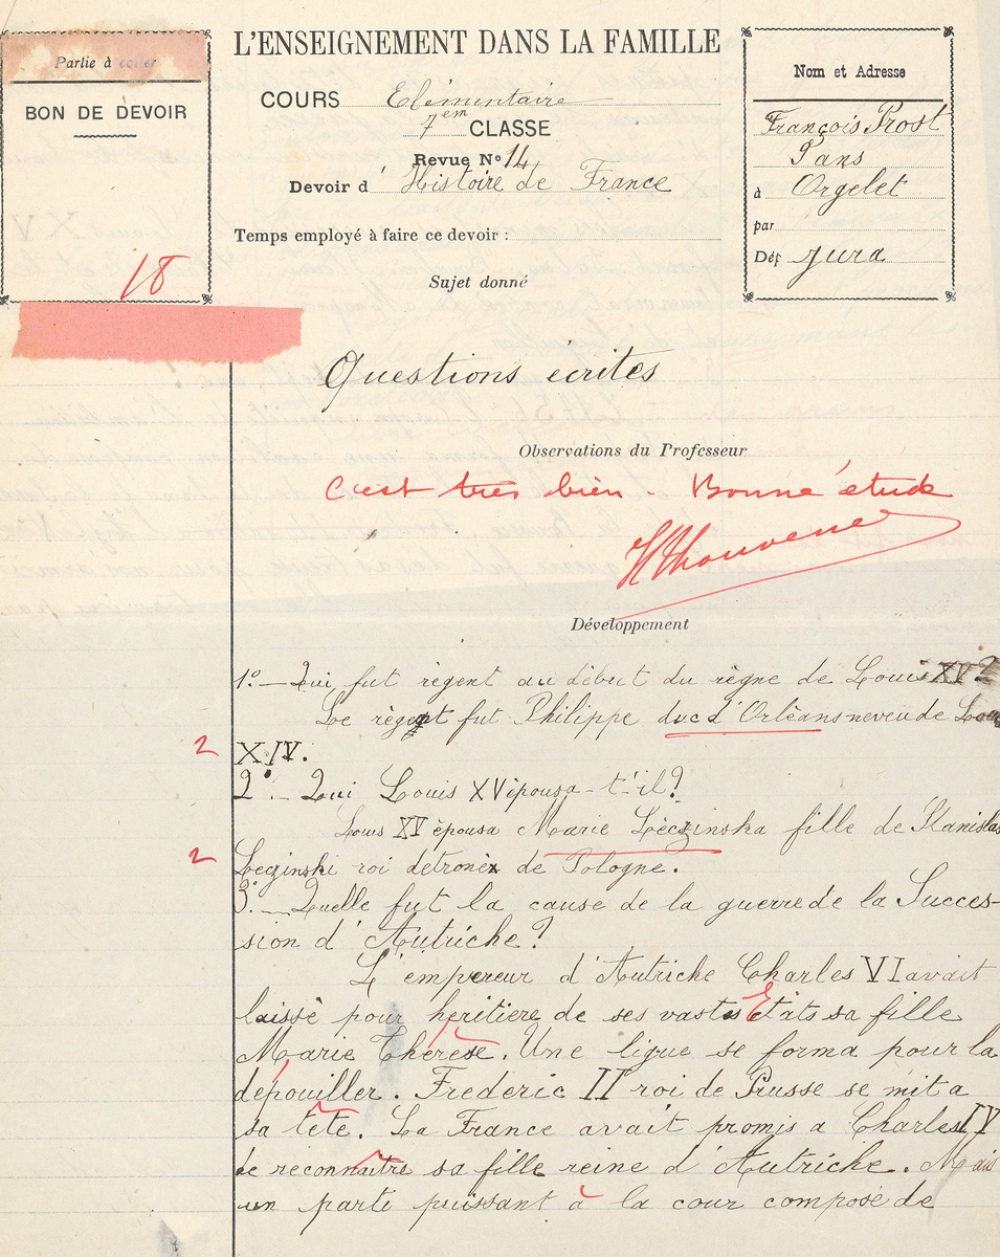 L'ENSEIGNEMENT DANS LA FAMILLE
Partie à coller
BON DE DEVOIR
18
COURS Elémentaire
7em CLASSE
Revue No 14
Devoir d'Histoire de France
Temps employé à faire ce devoir :
Sujet donné
Nom et Adresse
François Prost
Pans
à Orgelet
par
Dép Jura
Questions écrites
Observations du Professeur
C'est très bien - Bonne étude
Développement
1º - Qui fut règent au début du règne de Louis XV?
Le règent fut Philippe duc d'Orlèans neveu de Louis
2
XIV.
2º - Qui Louis XV èpousa-t-il?
Louis XV èpousa Marie Lèczinska fille de Stanislas
2
Leczinski roi détroné de Pologne.
3º - Quelle fut la cause de la guerre de la Succes-
sion d'Autriche?
L'empereur d'Autriche Charles VI avait
laissè pour héritiere de ses vastes Etats sa fille
Marie Thérèse. Une ligue se forma pour la
dépouiller. Frederic II roi de Prusse se mit a
sa tête. La France avait promis a Charles IV
de reconnaître sa fille reine d'Autriche. Mais
un parte puissant à la cour composé de